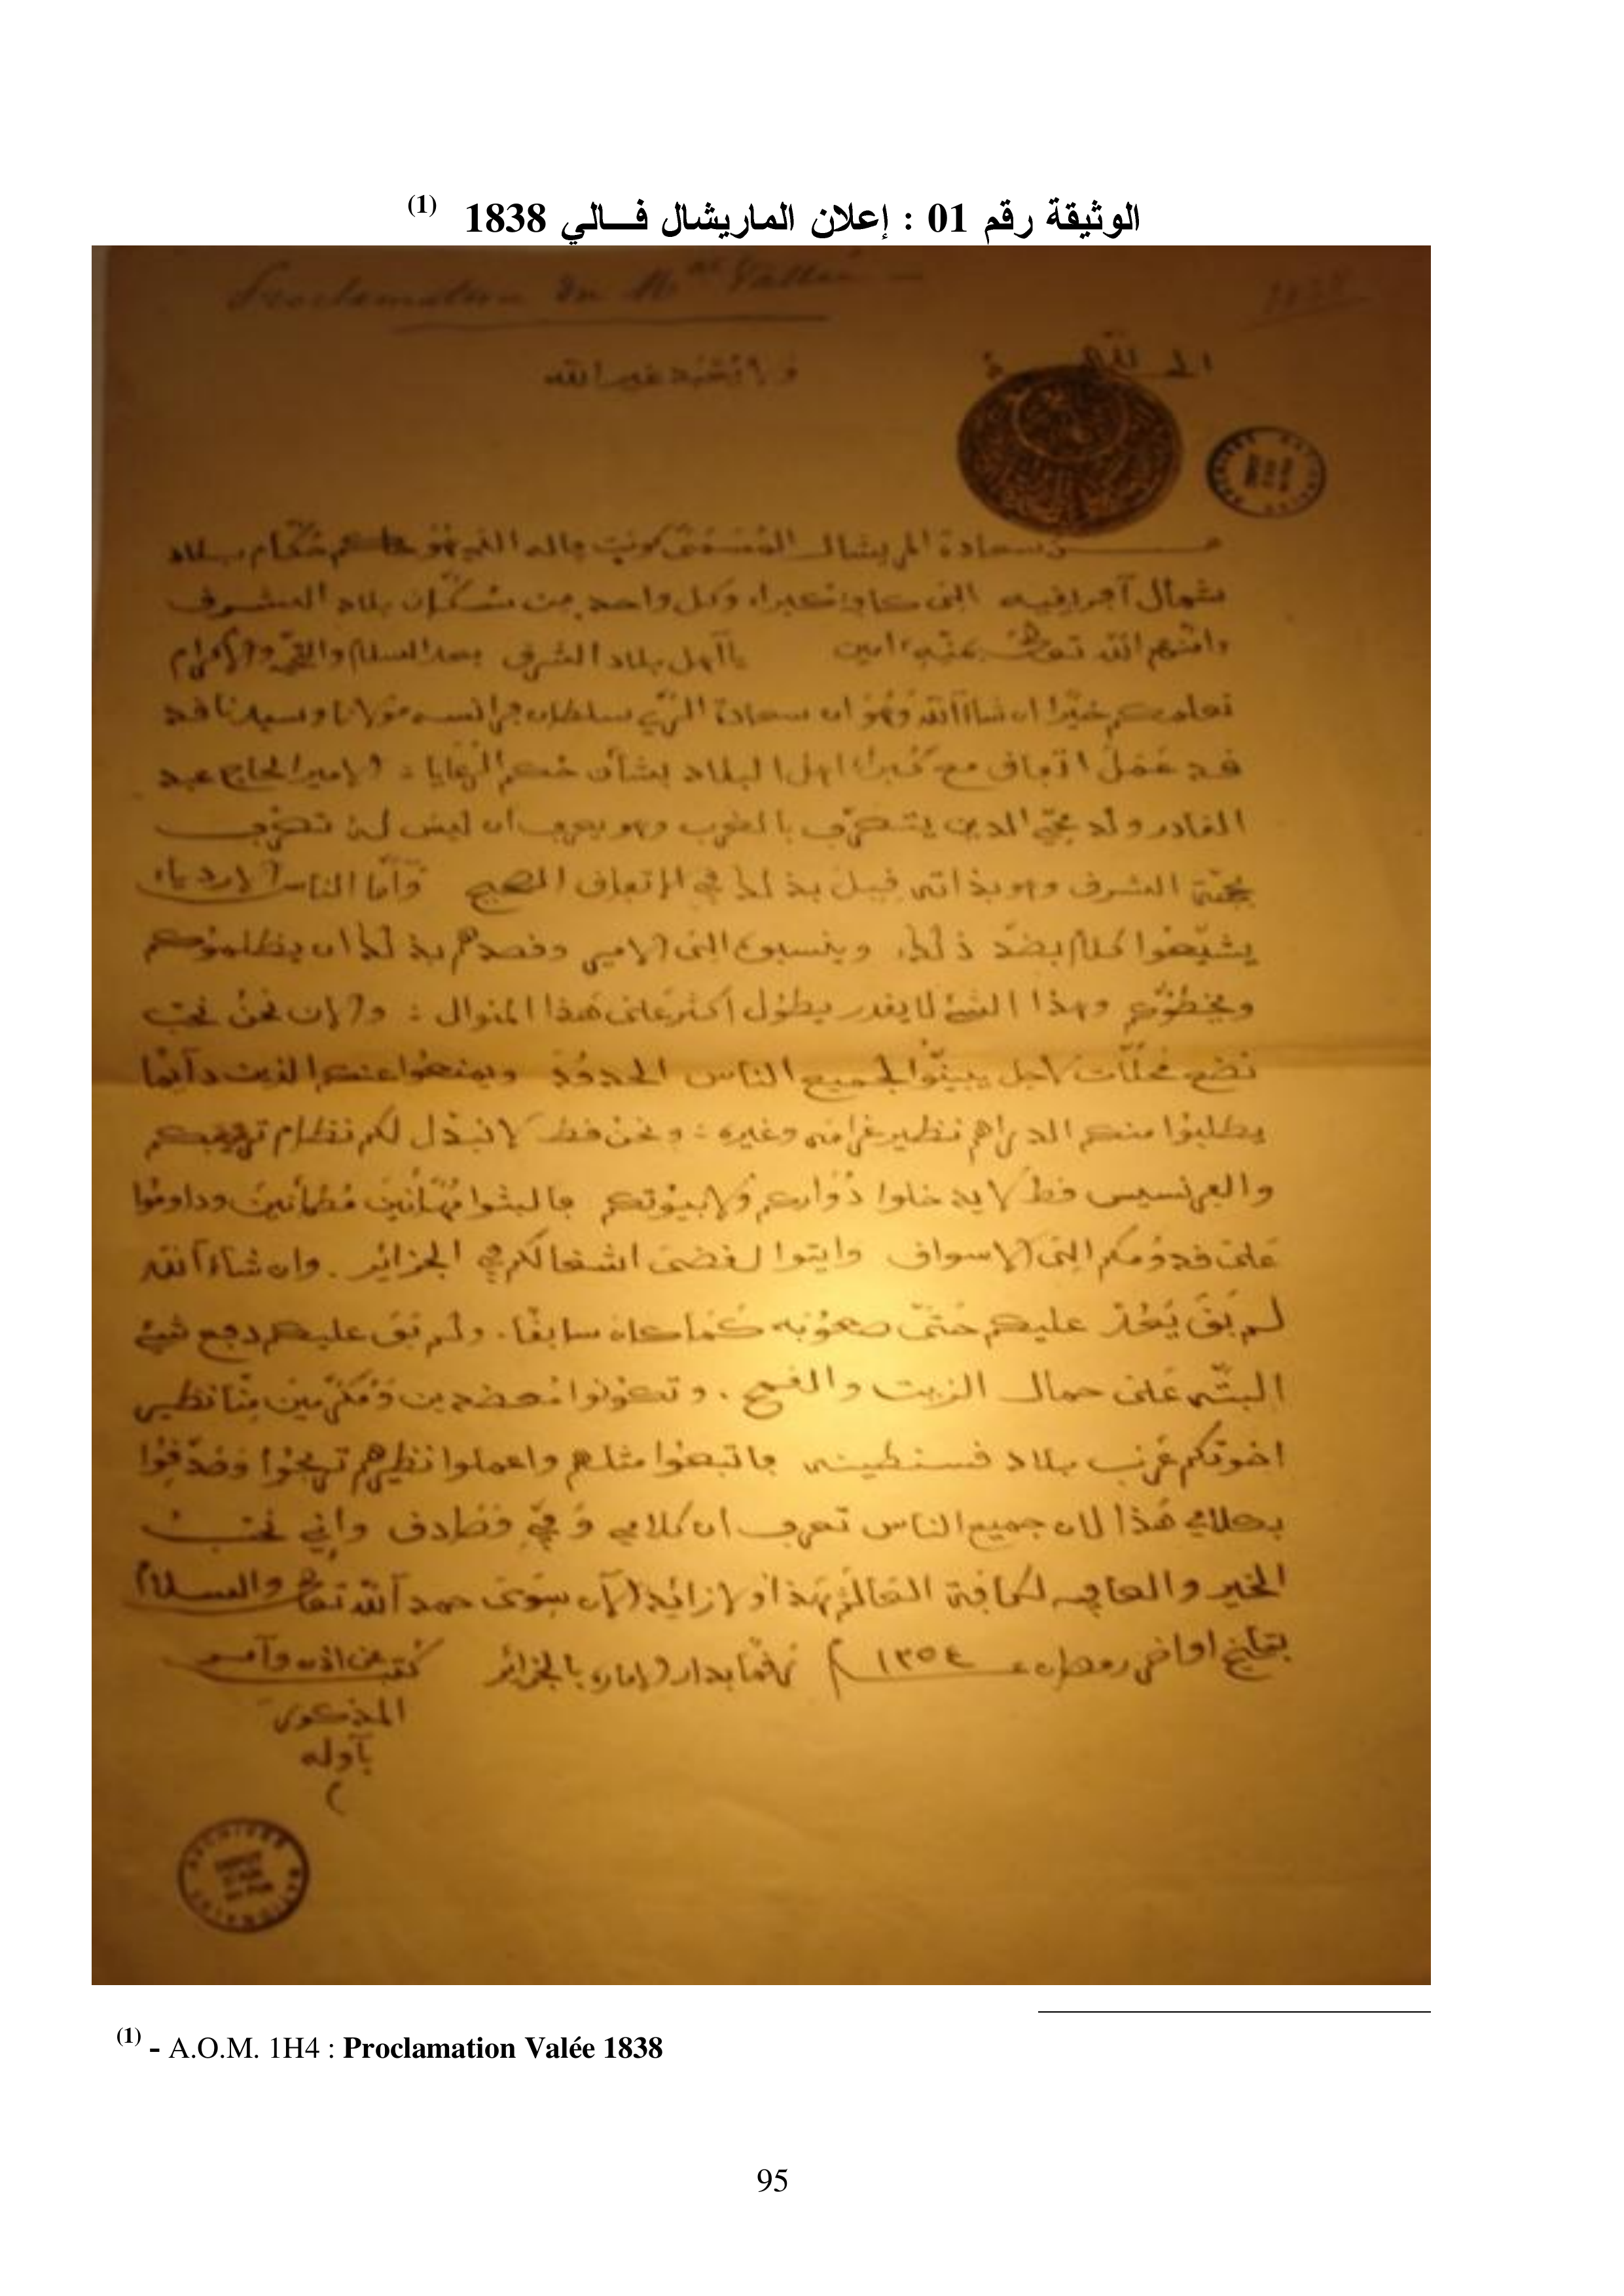 الوثيقة رقم 01 : إعلان الماريشال فـــالي 1838 (1)
Proclamation du Mal Vallée
1838
الحمد لله
ولا نعبد غير الله
من سعادة المريشال المسمى كونت واله الذي هو حاكم حكام بلاد
شمال آفريقيه الى كافة كبراء وكل واحد من سكان بلاد الشرق
الله بمنه امين يا آهل بلاد الشرق بعد السلام والاكرام
نعلمكم خيرا ان شاء الله وهو ان سعادة الري سلطان فرانسه مولانا وسيدنا قد
قد عمل اتفاق مع كبراء اهل البلاد بشأن حكم الرعايا : الامير الحاج عبد
القادر ولد محي الدين يتصرف بالغرب وهو يعرف أن ليس له تصرف
بجهة الشرق وهو بذاته قبل بذلك في الاتفاق الصحيح وآما الناس الاردياء
يشيعوا كلام بضد ذلك وينسبوه الى الامير وقصدهم بذلك ان يظلموكم
وهذا الشئ لا يقدر يطول أكثر على هذا المنوال : والان نحن نحب
نضع محلات لاجل يبينوا لجميع الناس الحدود ويمنعوا عنكم الذين دآيما
يطلبوا منكم الدراهم نظير غرامه وغيره : ونحن قط لا نبدل لكم نظام
والفرنسيس قط لا يدخلوا دواركم ولا بيوتكم فالبثوا مهنآنين مطمأنين وداوموا
على قدومكم الى الاسواق وايتوا لقضى اشغالكم في الجزائر . وان شاء الله
لم بق عليكم حتى صعوبه كما كان سابقا . ولم بق عليكم دفع شئ
البته على حمال الزيت والقمح . وتكونوا معضدين ومكرمين منا نظير
اخوتكم عرب بلاد قسنطينه فاتبعوا مثلهم واعملوا نظيرهم تربحوا وصدقوا
بكلامي هذا لان جميع الناس تعرف ان كلامي وفي وصادق واني نحب
الخير والعافيه لكافة العالم هذا ولا زائد الآن سوى حمد الله تعالى والسلام
بتاريخ اواخر رمضان سنة ١٢٥٤ رقما بدار الاماره بالجزائر كتب عن اذن وآمر
المذكور
بآوله
(1) - A.O.M. 1H4 : Proclamation Valée 1838
95